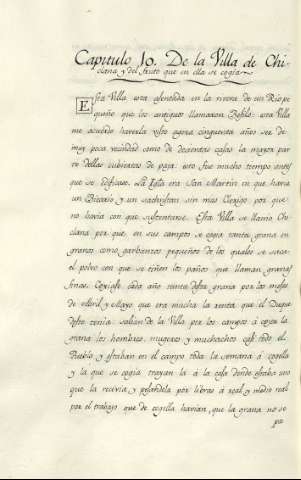 Capitulo 10. De la Villa de Chi-
clana y del fruto que en ella se cogia
Esta Villa esta asentada en la rivera de un Rio pe
queño que los antiguos llamaron Besilo esta Villa
me acuerdo haverla visto agora cinquenta años ser de
muy poca vecindad como de docientas casas la mayor par
te dellas cubiertas de paja esto fue mucho tiempo antes
que se edificase la era San Martin en que havia
un Vicario y un sachristan sin mas Clerigo por que
no havia con que sustentarse. Esta Villa se llamo Chi
clana por que en sus campos se cogia tanta grana en
granos como garbanzos pequeños de los quales se saca
el polvo con que se tiñen los paños que llaman granas
finas. Cogiase cada año tanta desta grana por los meses
de Abril y Mayo que era mucha la renta que el Duque
desto tenia: salian de la Villa por los campos á coger la
grana los hombres, mugeres y muchachos casi todo el
Pueblo y estaban en el campo toda la semana á cogella
y la que se cogia trayan la á la casa donde estaba uno
que la recivia, y pesandola por libras á real y medio real
por el trabajo que de cogella havian, que la grana no se